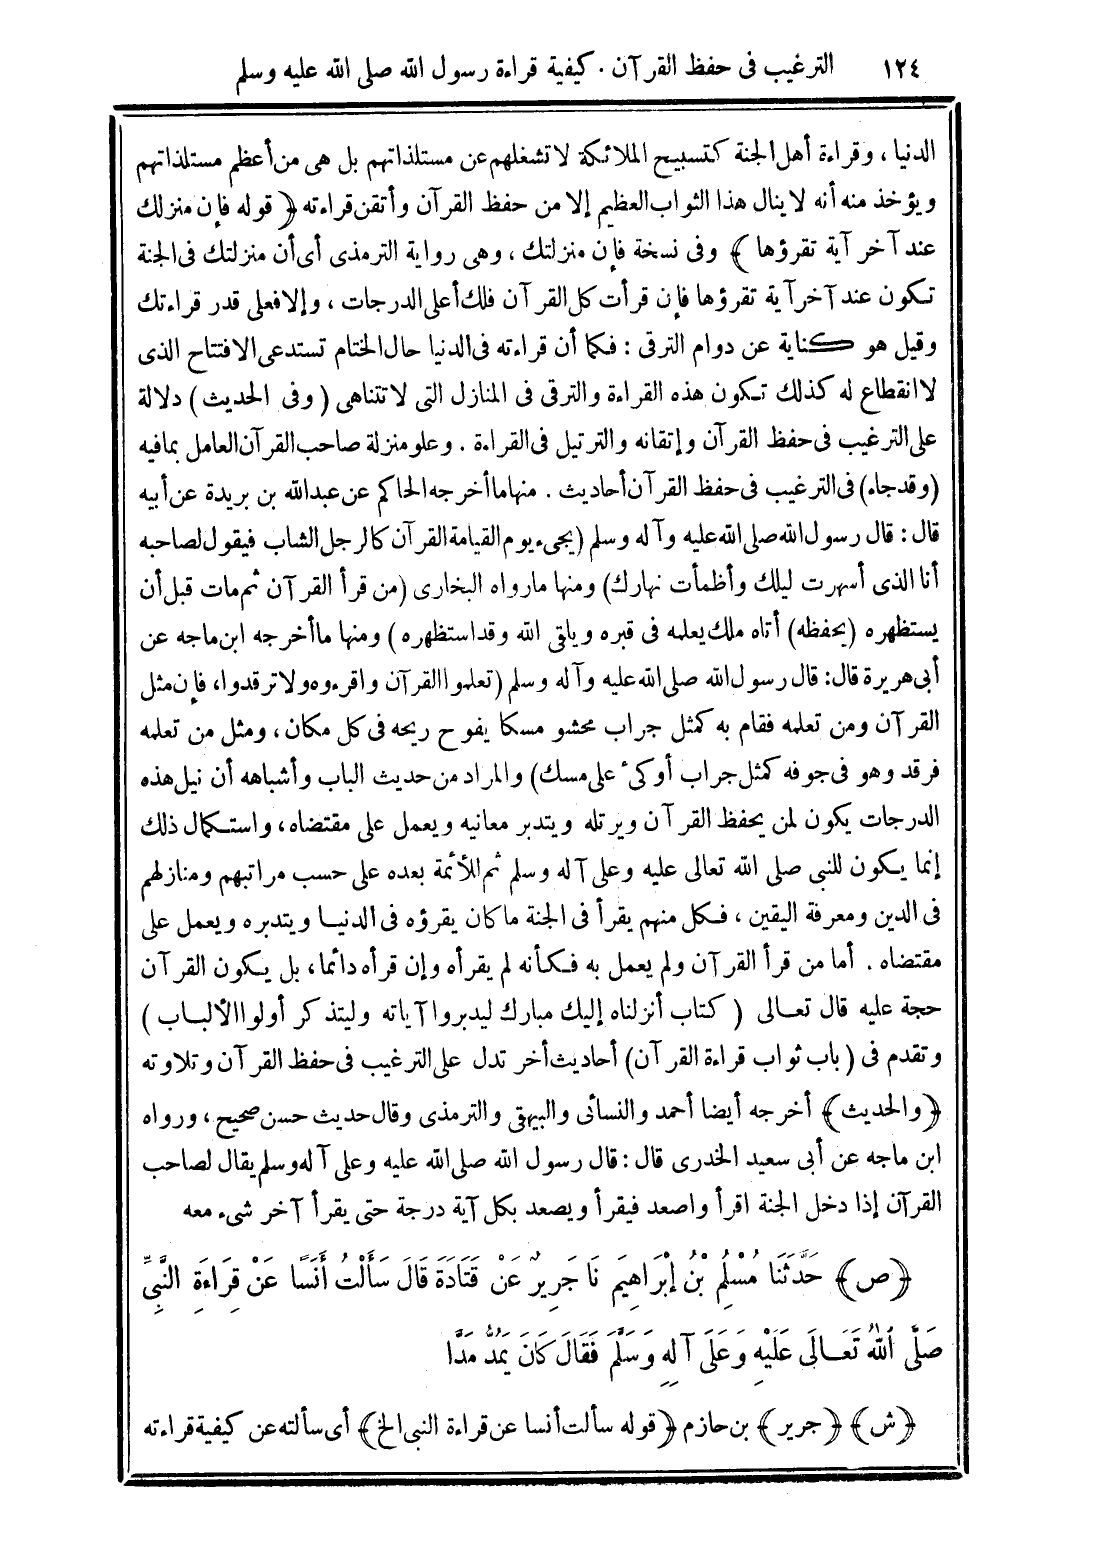 ١٢٤ الترغيب فى حفظ القرآن . كيفية قراءة رسول الله صلى الله عليه وسلم
الدنيا ، وقراءة أهل الجنة كتسبيح الملائكة لا تشغلهم عن مستلذاتهم بل هى من أعظم مستلذاتهم
ويؤخذ منه أنه لا ينال هذا الثواب العظيم إلا من حفظ القرآن وأتقن قراءته ﴿ قوله فإن منزلك
عند آخر آية تقرؤها ﴾ وفى نسخة فإن منزلتك ، وهى رواية الترمذى أى أن منزلتك فى الجنة
تكون عند آخر آية تقرؤها فإن قرأت كل القرآن فلك أعلى الدرجات ، وإلا فعلى قدر قراءتك
وقيل هو كناية عن دوام الترقى : فكما أن قراءته فى الدنيا حال الختام تستدعى الافتتاح الذى
لا انقطاع له كذلك تكون هذه القراءة والترقى فى المنازل التى لا تتناهى ( وفى الحديث ) دلالة
على الترغيب فى حفظ القرآن وإتقانه والترتيل فى القراءة . وعلو منزلة صاحب القرآن العامل بمافيه
(وقدجاء) فى الترغيب فى حفظ القرآن أحاديث . منها ما أخرجه الحاكم عن عبدالله بن بريدة عن أبيه
قال : قال رسول الله صلى الله عليه وآله وسلم (يجىء يوم القيامة القرآن كالرجل الشاب فيقول لصاحبه
أنا الذى أسهرت ليلك وأظمأت نهارك) ومنها مارواه البخارى (من قرأ القرآن ثم مات قبل أن
يستظهره (يحفظه) أتاه ملك يعلمه فى قبره ويلقى الله وقد استظهره ) ومنها ما أخرجه ابن ماجه عن
أبى هريرة قال: قال رسول الله صلى الله عليه وآله وسلم (تعلموا القرآن واقرءوه ولا ترقدوا، فإن مثل
القرآن ومن تعلمه فقام به كمثل جراب محشو مسكا يفوح ريحه فى كل مكان ، ومثل من تعلمه
فرقد وهو فى جوفه كمثل جراب أوكىء على مسك) والمراد من حديث الباب وأشباهه أن نيل هذه
الدرجات يكون لمن يحفظ القرآن ويرتله ويتدبر معانيه ويعمل على مقتضاه، واستكمال ذلك
إنما يكون للنبى صلى الله تعالى عليه وعلى آله وسلم ثم للأئمة بعده على حسب مراتبهم ومنازلهم
فى الدين ومعرفة اليقين ، فكل منهم يقرأ فى الجنة ما كان يقرؤه فى الدنيا ويتدبره ويعمل على
مقتضاه . أما من قرأ القرآن ولم يعمل به فكأنه لم يقرأه وإن قرأه دائما، بل يكون القرآن
حجة عليه قال تعالى ( كتاب أنزلناه إليك مبارك ليدبروا آياته وليتذكر أولوا الألباب )
وتقدم فى ( باب ثواب قراءة القرآن) أحاديث أخر تدل على الترغيب فى حفظ القرآن وتلاوته
﴿ والحديث﴾ أخرجه أيضا أحمد والنسائى والبيهقى والترمذى وقال حديث حسن صحيح ، ورواه
ابن ماجه عن أبى سعيد الخدرى قال : قال رسول الله صلى الله عليه وعلى آله وسلم يقال لصاحب
القرآن إذا دخل الجنة اقرأ واصعد فيقرأ ويصعد بكل آية درجة حتى يقرأ آخر شىء معه
﴿ص﴾ حَدَّثَنَا مُسْلِمُ بْنُ إِبْرَاهِيمَ نَا جَرِيرٌ عَنْ قَتَادَةَ قَالَ سَأَلْتُ أَنَسًا عَنْ قِرَاءَةِ النَّبِىِّ
صَلَّى اللهُ تَعَالَى عَلَيْهِ وَعَلَى آلِهِ وَسَلَّمَ فَقَالَ كَانَ يَمُدُّ مَدًّا
﴿ش﴾ ﴿جرير﴾ بن حازم ﴿قوله سألت أنسا عن قراءة النبى الخ﴾ أى سألته عن كيفية قراءته